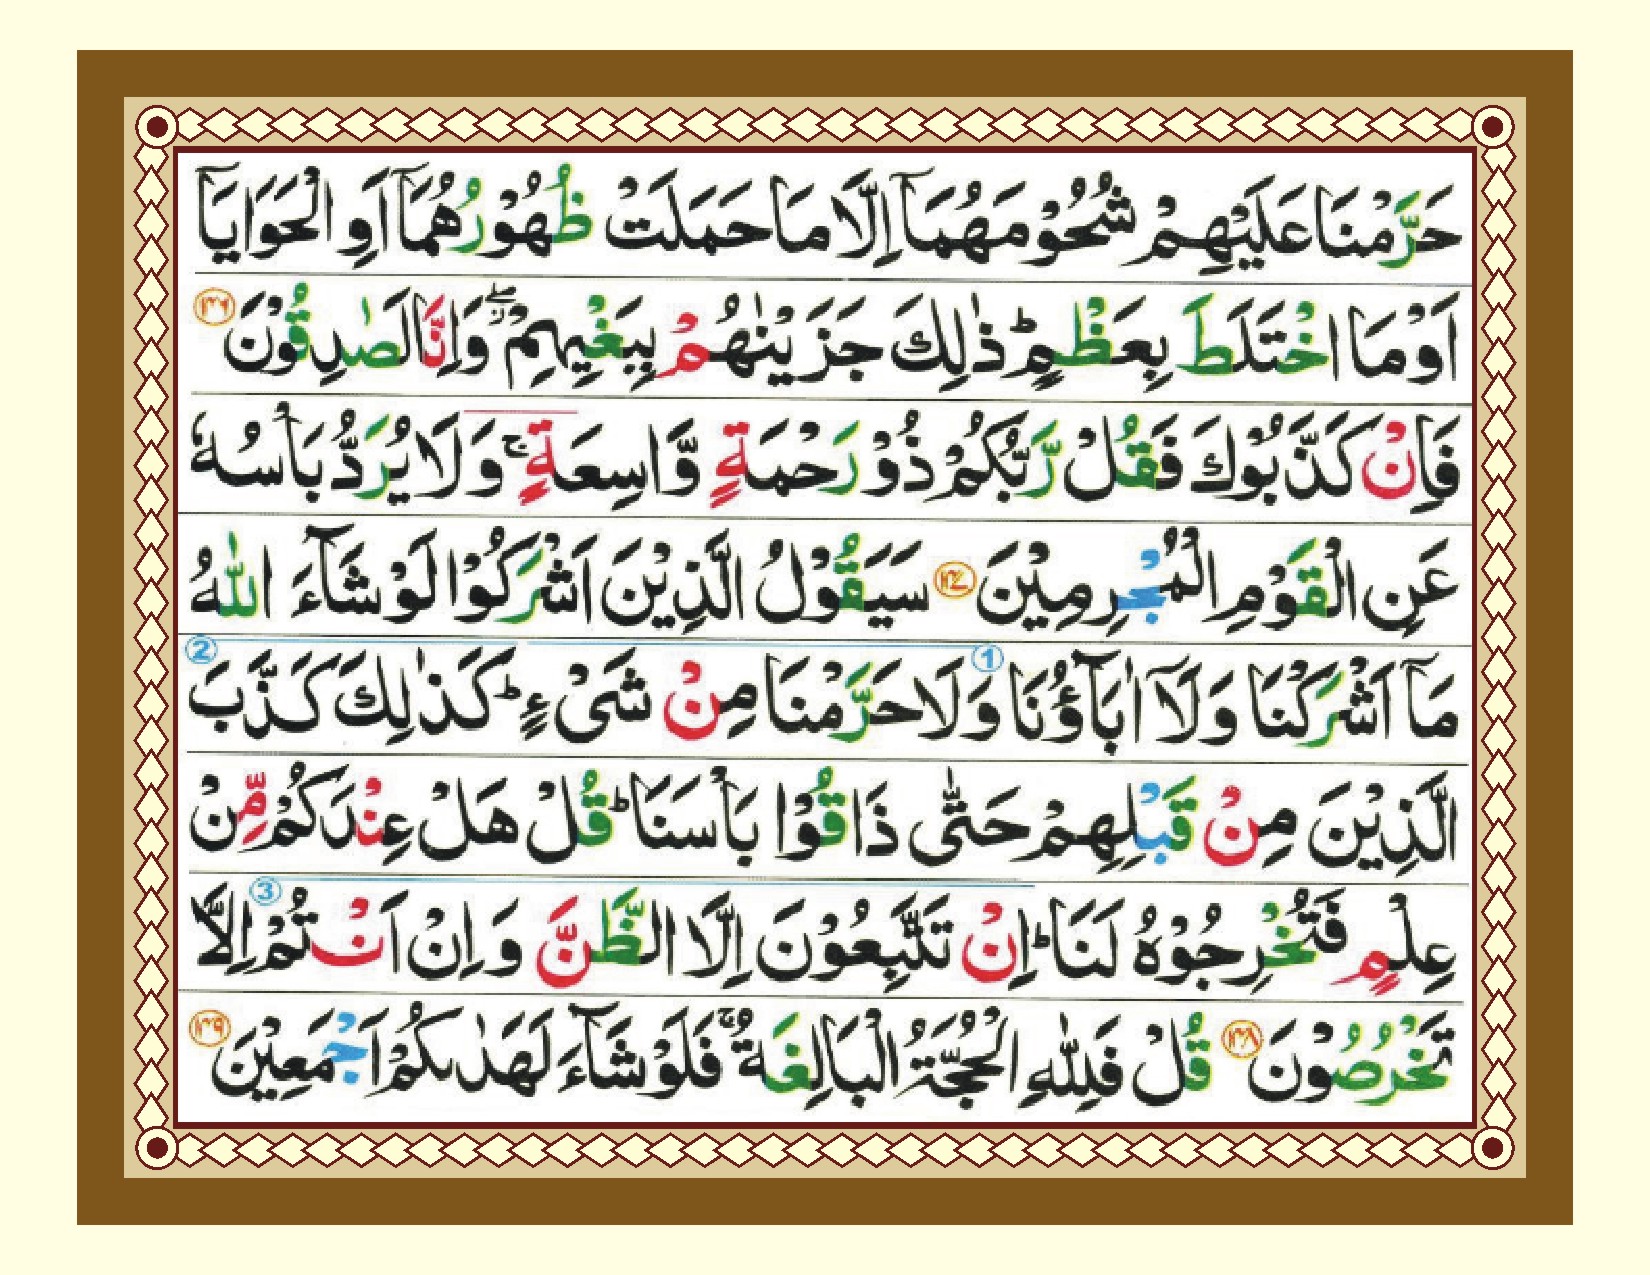 حَرَّمْنَا عَلَيْهِمْ شُحُوْمَهُمَاۤ اِلَّا مَا حَمَلَتْ ظُهُوْرُهُمَاۤ اَوِ الْحَوَايَاۤ
اَوْ مَا اخْتَلَطَ بِعَظْمٍ ؕ ذٰلِكَ جَزَيْنٰهُمْ بِبَغْيِهِمْ ۖ وَاِنَّا لَصٰدِقُوْنَ ۱۴۶
فَاِنْ كَذَّبُوْكَ فَقُلْ رَّبُّكُمْ ذُوْ رَحْمَةٍ وَّاسِعَةٍ ۚ وَلَا يُرَدُّ بَاْسُهٗ
عَنِ الْقَوْمِ الْمُجْرِمِيْنَ ۱۴۷ سَيَقُوْلُ الَّذِيْنَ اَشْرَكُوْا لَوْ شَآءَ اللّٰهُ
مَاۤ اَشْرَكْنَا وَلَاۤ اٰبَآؤُنَا ① وَلَا حَرَّمْنَا مِنْ شَیْءٍ ؕ كَذٰلِكَ كَذَّبَ ②
الَّذِيْنَ مِنْ قَبْلِهِمْ حَتّٰى ذَاقُوْا بَاْسَنَا ؕ قُلْ هَلْ عِنْدَكُمْ مِّنْ
عِلْمٍ فَتُخْرِجُوْهُ لَنَا ؕ اِنْ تَتَّبِعُوْنَ اِلَّا الظَّنَّ وَاِنْ اَنْتُمْ ③ اِلَّا
تَخْرُصُوْنَ ۱۴۸ قُلْ فَلِلّٰهِ الْحُجَّةُ الْبَالِغَةُ ۚ فَلَوْ شَآءَ لَهَدٰىكُمْ اَجْمَعِيْنَ ۱۴۹